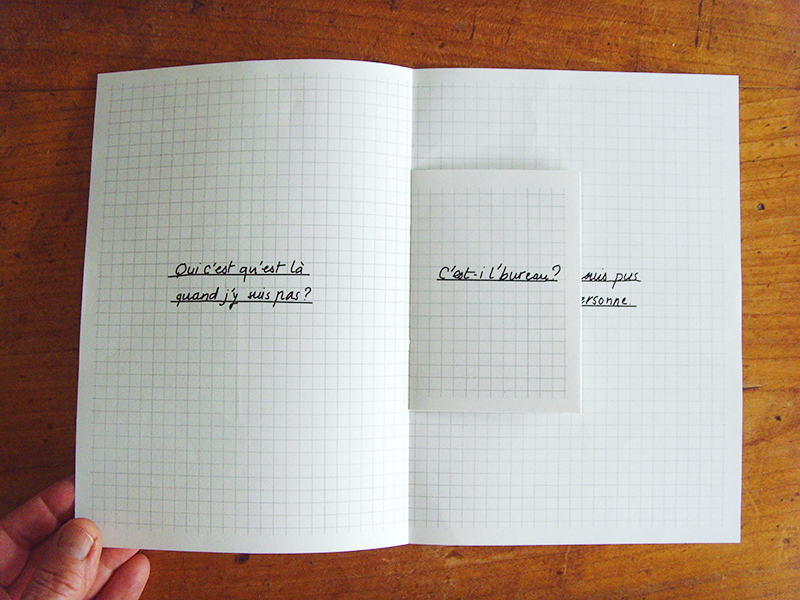 Qui c'est qu'est là
quand j'y suis pas?
C'est-i l'bureau?
suis pus
ersonne.